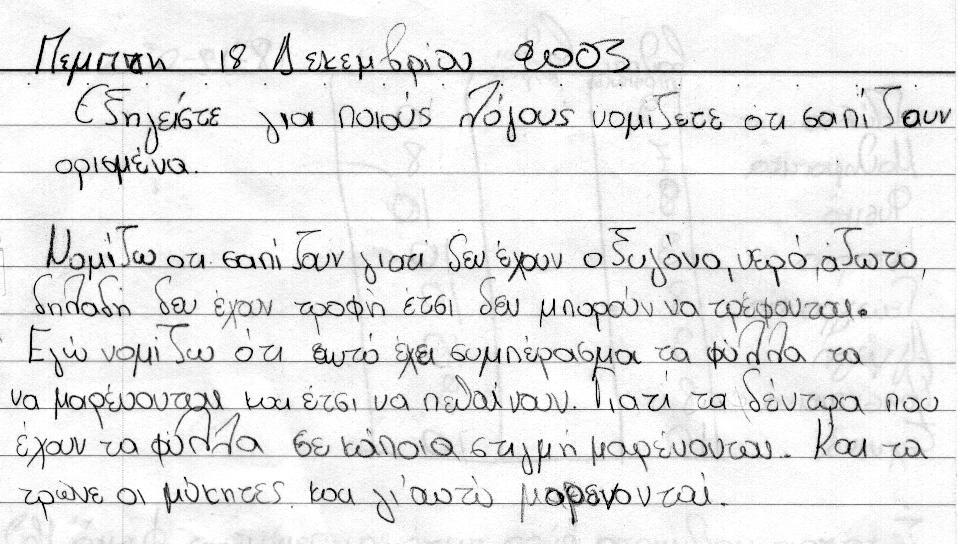 Πεμπτη 18 Δεκεμβρίου 2003
Εξηγείστε για ποιούς λόγους νομίζετε ότι σαπίζουν
ορισμένα.
Νομίζω οτι σαπίζουν γιατί δεν έχουν οξυγόνο, νερό, άζωτο,
δηλαδή δεν έχουν τροφή έτσι δεν μπορούν να τρέφονται.
Εγώ νομίζω ότι αυτό έχει συμπέρασμα τα φύλλα τα
να μαρένονται και έτσι να πεθαίνουν. Γιατί τα δέντρα που
έχουν τα φύλλα σε κάποια στιγμή μαρένονται. Και τα
τρώνε οι μύκητες και γι'αυτό μαρενονται.